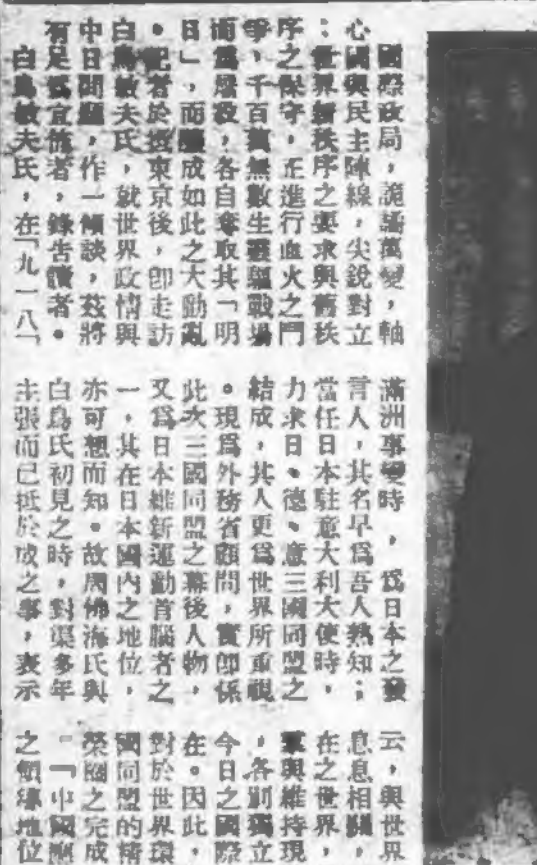 國際政局，詭譎萬變，軸
心國與民主陣線，尖銳對立
；世界新秩序之要求與舊秩
序之保守，正進行血火之鬥
爭，千百萬無數生靈驅戰場
而為，各自奪取其「明
日」，而成如此之大動亂
。記者於抵東京後，即走訪
白鳥敏夫氏，就世界政情與
中日問題，作一傾談，茲將
有足者，錄告讀者。
白鳥敏夫氏，在「九一八」
滿洲事變時，為日本之發
言人，其名早為吾人熟知；
當任日本駐意大利大使時，
力求日、德、意三國同盟之
結成，其人更為世界所重視
。現為外務省顧問，實即係
此次三國同盟之幕後人物，
又為日本維新運動首腦者之
一，其在日本國內之地位，
亦可想而知。故周佛海氏與
白鳥氏初見之時，對渠多年
主張而已抵於成之事，表示
云，與世界
息息相關，
在之世界，
與維持現
，各別獨立
今日之國際
在。因此，
對於世界環
國同盟的精
榮圈之完成
。「中國
之領導地位